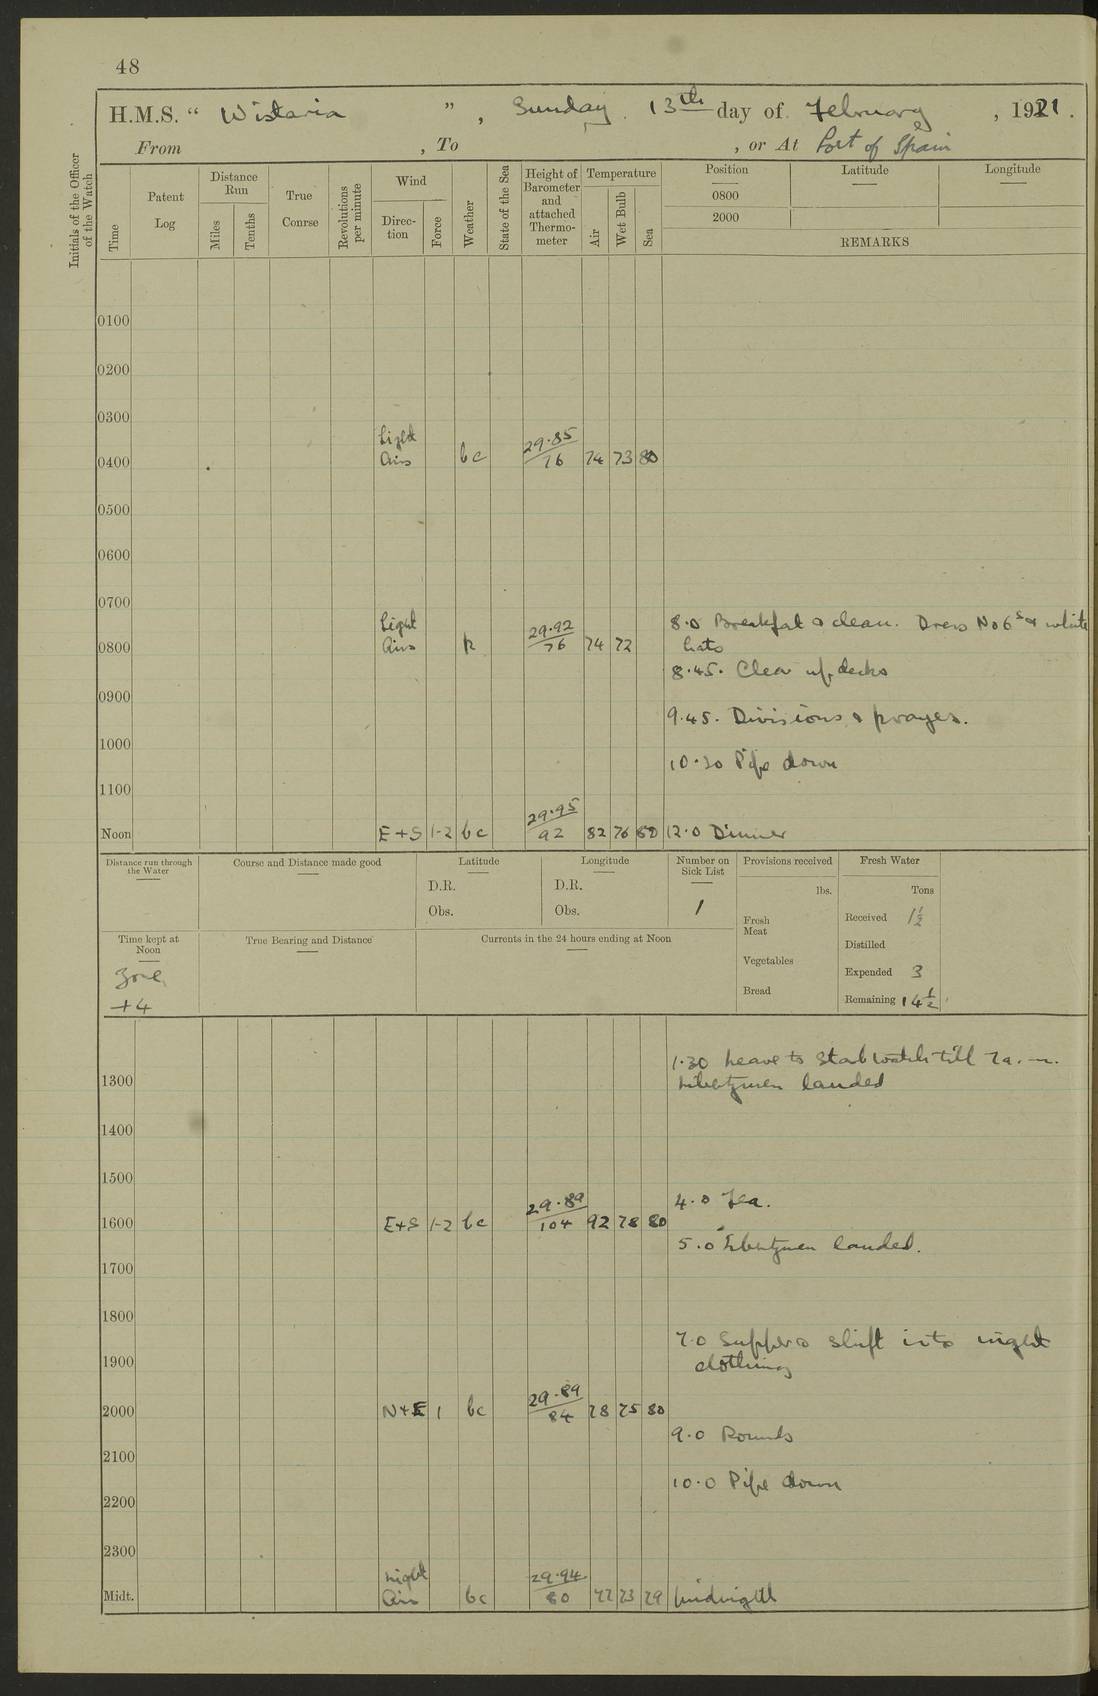 48
H.M.S. “ Wistaria ” , Sunday 13th day of February , 1921 .
From , To , or At Port of Spain
Initials of the Officer of the Watch
Time
Patent Log
Distance Run
Miles
Tenths
True Course
Revolutions per minute
Wind
Direc-tion
Force
Weather
State of the Sea
Height of Barometer and attached Thermo-meter
Temperature
Air
Wet Bulb
Sea
Position Latitude Longitude
0800
2000
REMARKS
0100
0200
0300
Light
0400 Airs bc 29.85/76 74 73 80
0500
0600
0700
Light 8.0 Breakfast & clean. Dress No 6s & white
0800 Airs 29.92/76 74 72 hats
8.45. Clear up decks
0900
9.45. Divisions & prayers.
1000
10.30 Pipe down
1100
Noon E+S 1-2 bc 29.95/92 82 76 80 12.0 Dinner
Distance run through the Water
Course and Distance made good
Latitude
D.R.
Obs.
Longitude
D.R.
Obs.
Number on Sick List
1
Provisions received
lbs.
Fresh Meat
Vegetables
Bread
Fresh Water
Tons
Received 1½
Distilled
Expended 3
Remaining 14½
Time kept at Noon
Zone
+4
True Bearing and Distance
Currents in the 24 hours ending at Noon
1.30 Leave to Starb watch till 7 a.m.
1300 Libertymen landed
1400
1500
4.0 Tea.
1600 E+S 1-2 bc 29.89/104 92 78 80
5.0 Libertymen landed.
1700
1800
7.0 Supper & shift into night
1900 clothing
2000 N+E 1 bc 29.89/84 78 75 80
9.0 Rounds
2100
10.0 Pipe down
2200
2300
Light
Midt. Airs bc 29.94/80 77 73 79 Midnight